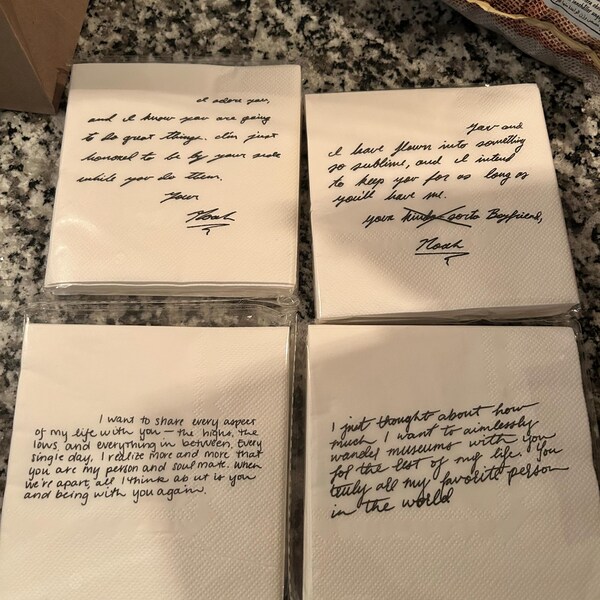 I adore you,
and I know you are going
to do great things. I'm just
honored to be by your side
while you do them.
Your
Noah
You and
I have flown into something
so sublime, and I intend
to keep you for as long as
you'll have me.
your kinda-sorta Boyfriend,
Noah
I want to share every aspect
of my life with you – the highs, the
lows, and everything in between. Every
single day, I realize more and more that
you are my person and soulmate. When
we're apart, all I think about is you
and being with you again.
I just thought about how
much I want to aimlessly
wander museums with you
for the rest of my life. You
truly are my favorite person
in the world